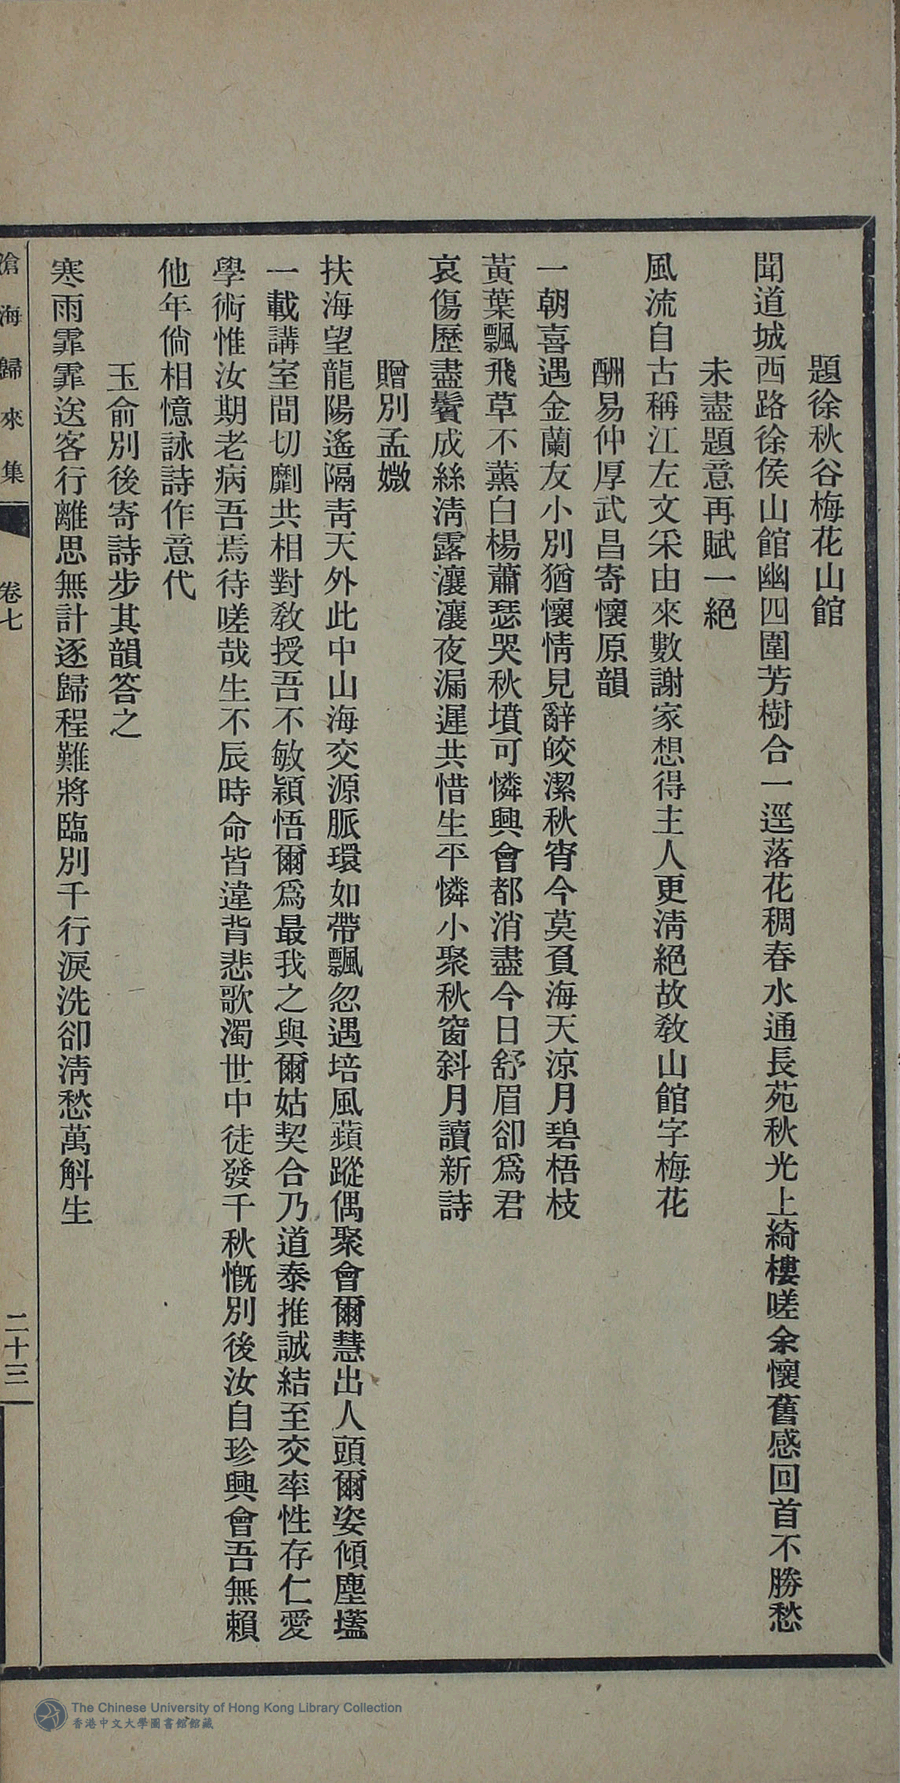 題徐秋谷梅花山館
聞道城西路徐侯山館幽四圍芳樹合一逕落花稠春水通長苑秋光上綺樓嗟余懷舊感回首不勝愁
未盡題意再賦一絕
風流自古稱江左文采由來數謝家想得主人更淸絕故敎山館字梅花
酬易仲厚武昌寄懷原韻
一朝喜遇金蘭友小別猶懷情見辭皎潔秋宵今莫負海天涼月碧梧枝
黃葉飄飛草不薰白楊蕭瑟哭秋墳可憐興會都消盡今日舒眉卻爲君
哀傷歷盡鬢成絲淸露瀼瀼夜漏遲共惜生平憐小聚秋窗斜月讀新詩
贈別孟媺
扶海望龍陽遙隔靑天外此中山海交源脈環如帶飄忽遇培風蘋蹤偶聚會爾慧出人頭爾姿傾塵壒
一載講室間切劘共相對敎授吾不敏穎悟爾爲最我之與爾姑契合乃道泰推誠結至交率性存仁愛
學術惟汝期老病吾焉待嗟哉生不辰時命皆違背悲歌濁世中徒發千秋慨別後汝自珍興會吾無賴
他年倘相憶詠詩作意代
玉俞別後寄詩步其韻答之
寒雨霏霏送客行離思無計逐歸程難將臨別千行淚洗卻淸愁萬斛生
滄海歸來集
卷七
二十三
The Chinese University of Hong Kong Library Collection
香港中文大學圖書館館藏